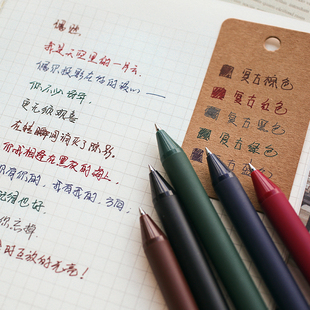 偶然
我是天空里的一片云
偶尔投影在你的波心——
你不必讶异
更无须欢喜
在转瞬间消灭了踪影。
你我相逢在黑夜的海上
你有你的，我有我的，方向
记得也好
你忘掉
时互放的光亮！
复古棕色
复古红色
复古黑色
复古绿色
复古蓝色